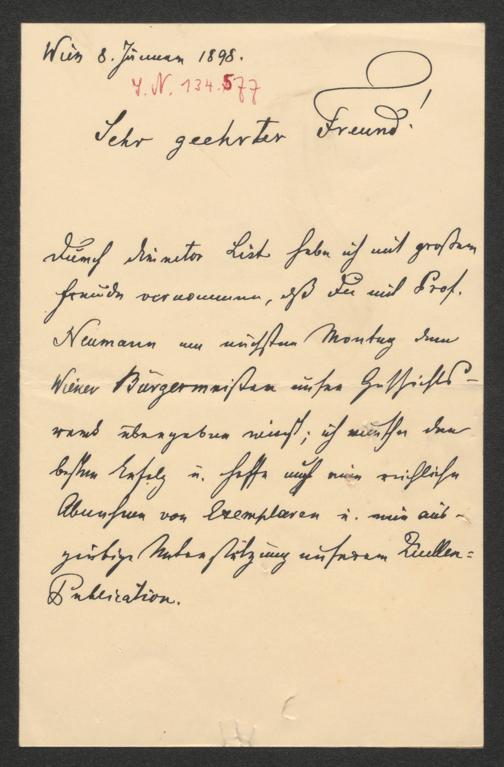 Wien 8. Jänner 1898.
J. N. 134.577
Sehr geehrter Freund!
Durch Director List habe ich mit großem
Freude vernommen, daß Du mit Prof.
Neumann am nächsten Montag dem
Wiener Bürgermeister unser Geschichts-
werk übergeben wirst; ich wünsche den
besten Erfolg u. hoffe auf eine reichliche
Abnahme von Exemplaren u. eine aus-
giebige Unterstützung unserem Quellen=
Publication.